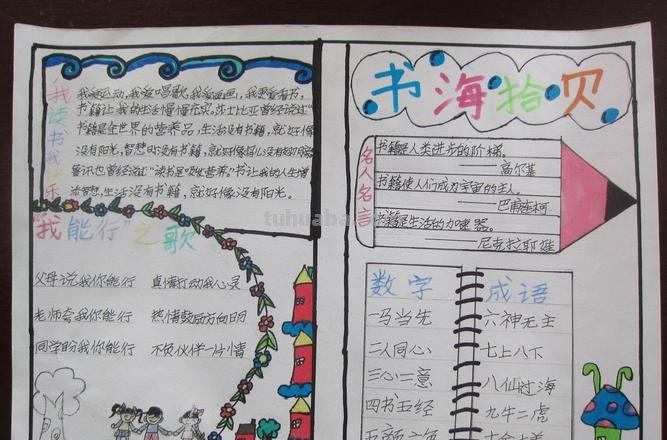 我读书我快乐
我爱运动，我爱唱歌，我爱画画，我更爱看书，
书籍让我的生活慢慢充实。莎士比亚曾经说过"
书籍是全世界的营养品，生活没有书籍，就好像
没有阳光，智慧时没有书籍，就好像鸟儿没有翅膀
就好像没有阳光。
"我能行"之歌
父母说我你能行 真情打动我心灵
老师夸我你能行 热情鼓励方向明
同学盼我你能行 不负伙伴一片情
书海拾贝
名人名言
书籍是人类进步的阶梯。
高尔基
书籍使人们成为宇宙的主人。
——巴甫连柯
书籍是生活的加速器。
——尼克拉耶娃
数字 成语
一马当先 六神无主
二人同心 七上八下
三心二意 八仙过海
四书五经 九牛二虎
tuhuaba